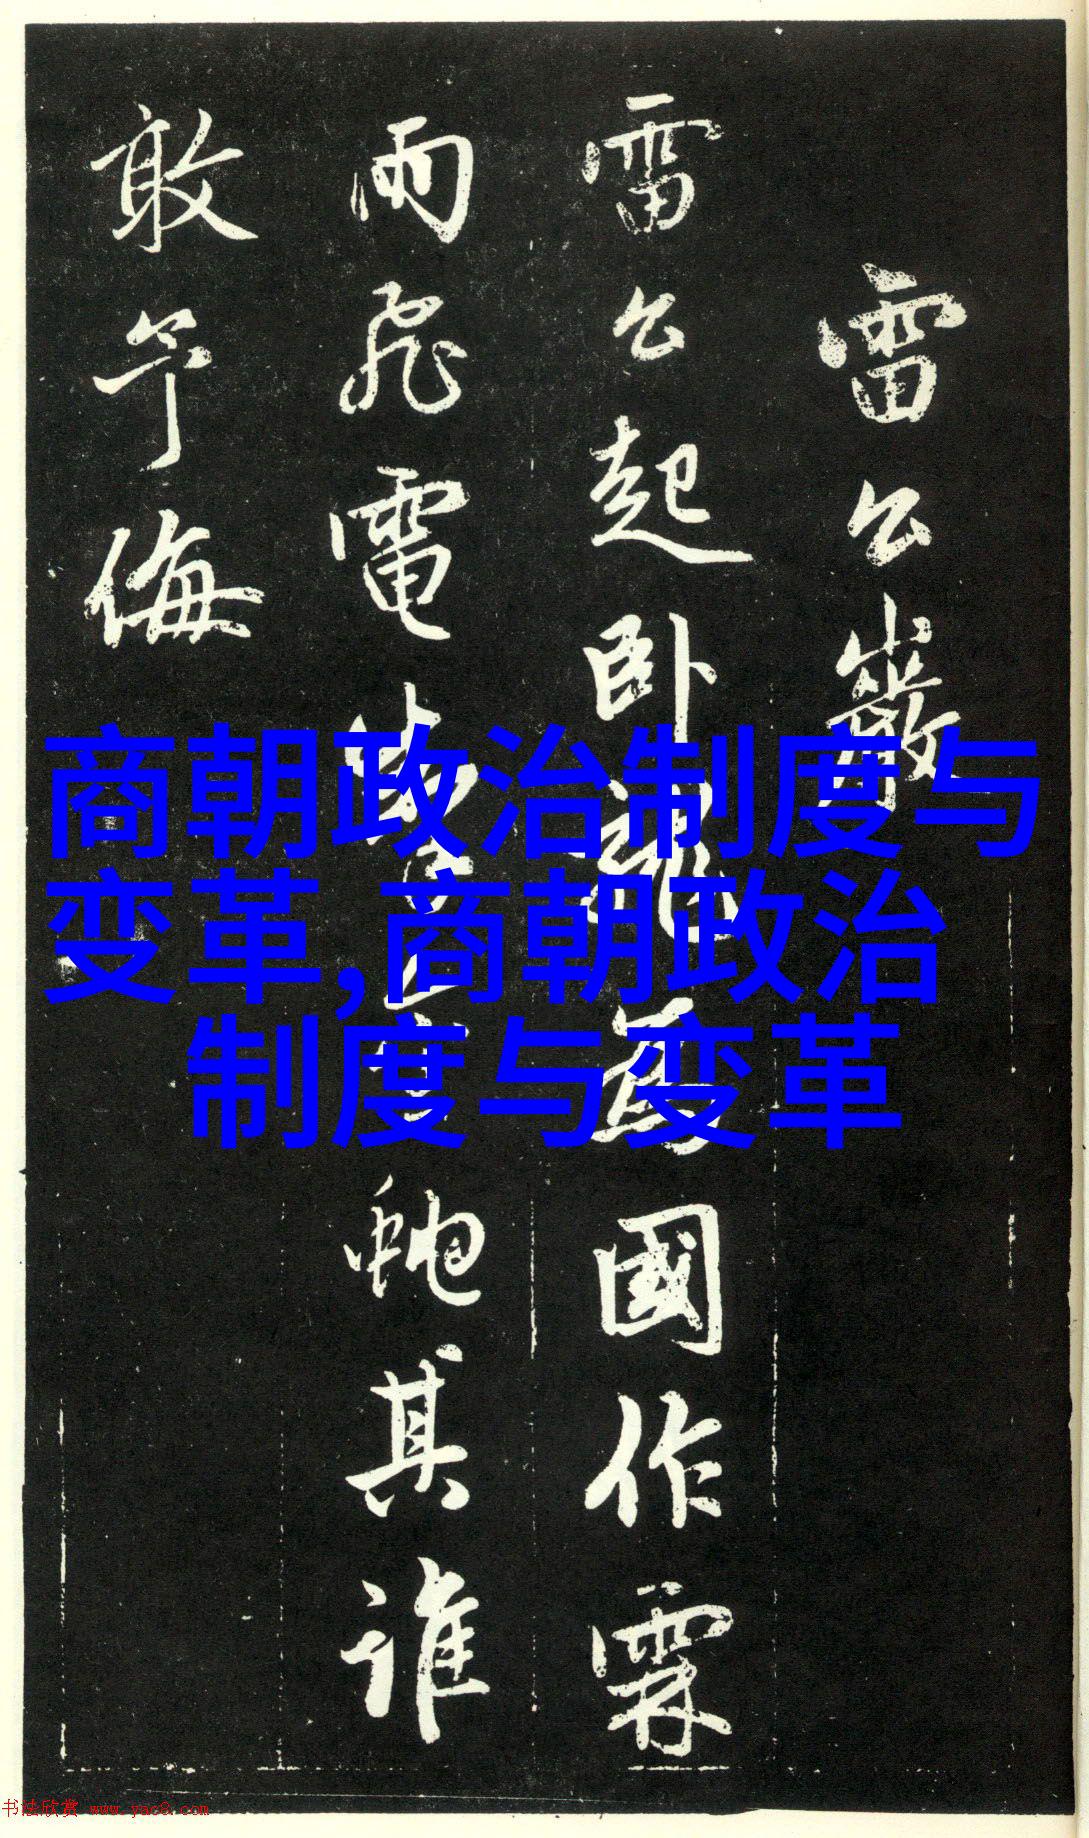 雷公巖
雷公起卧龍為國作霖
雨飛電其誰
敢乍侮
商朝政治制度与
变革,商朝政治
制度与变革
书法欣赏 www.yac8.com